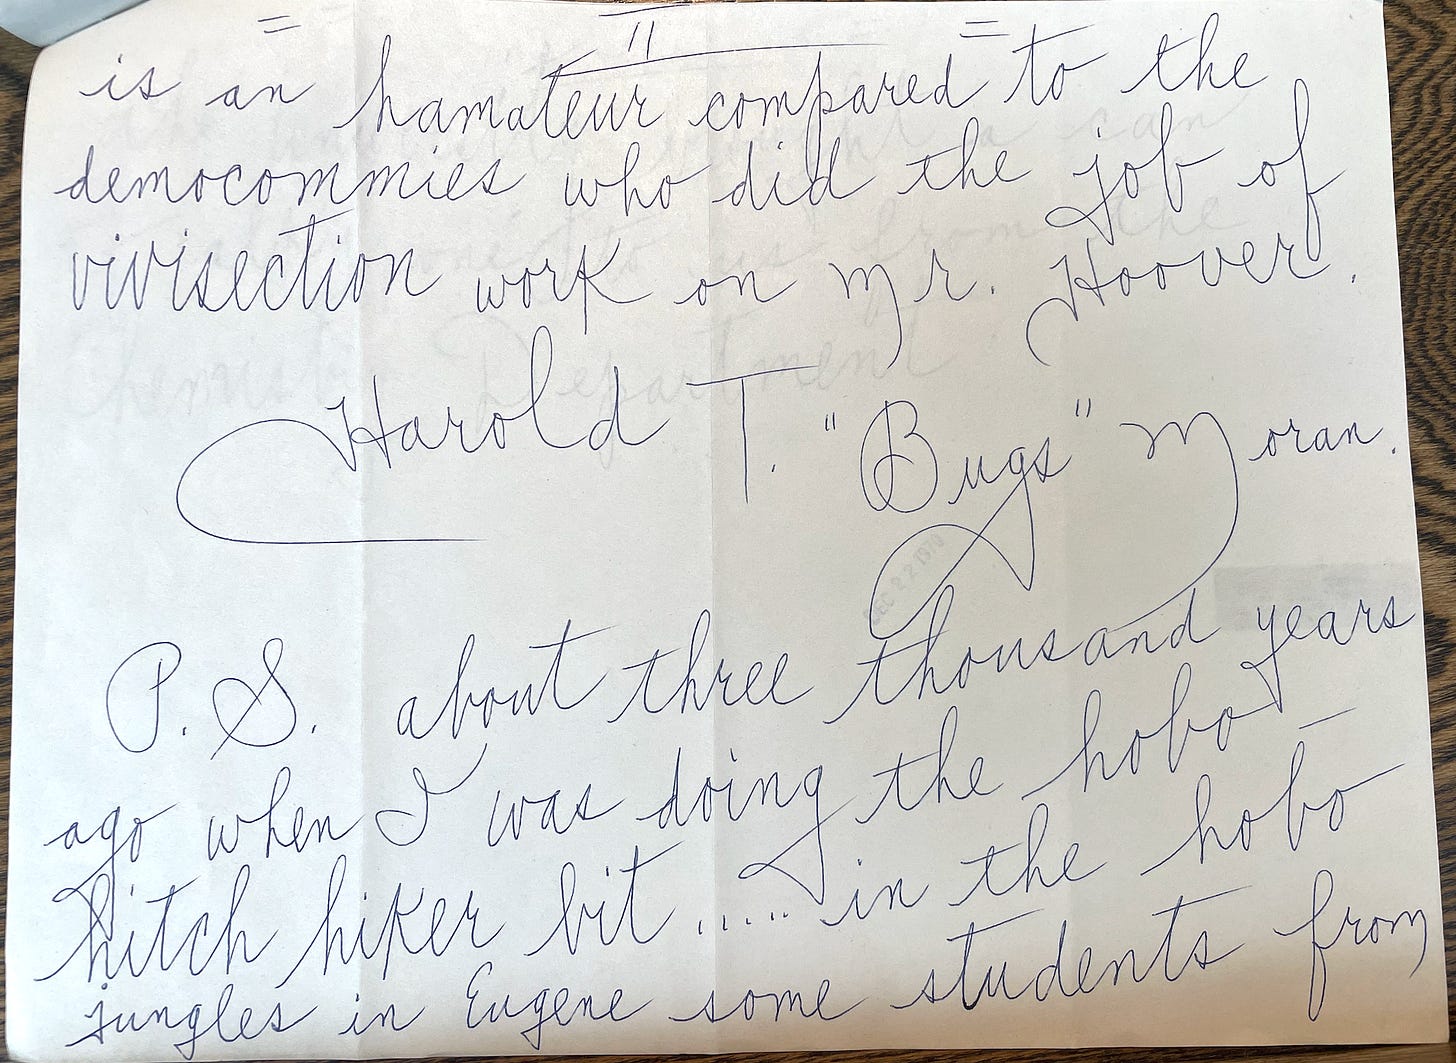 = 11 =
is an hamateur compared to the
democommies who did the job of
vivisection work on Mr. Hoover.
Harold T. "Bugs" Moran.
DEC 22 1970
P. S. about three thousand years
ago when I was doing the hobo –
hitch hiker bit ..... in the hobo
jungles in Eugene some students from